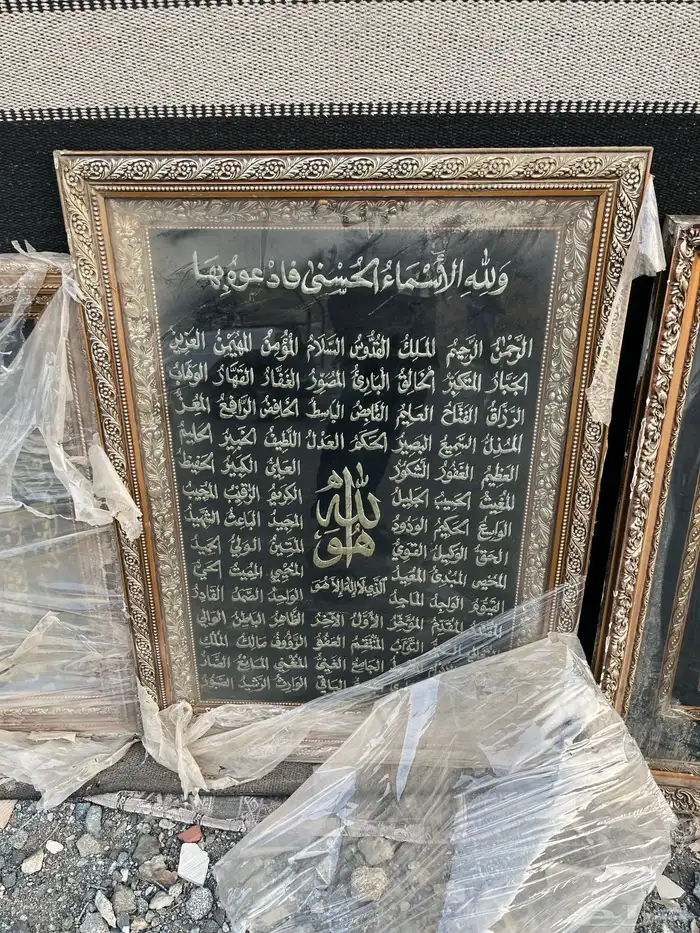 وَلِلَّهِ الْأَسْمَاءُ الْحُسْنَى فَادْعُوهُ بِهَا
الرَّحْمٰنُ الرَّحِيمُ الْمَلِكُ الْقُدُّوسُ السَّلَامُ الْمُؤْمِنُ الْمُهَيْمِنُ الْعَزِيزُ
الجَبَّارُ المُتَكَبِّرُ الخَالِقُ البَارِئُ المُصَوِّرُ الغَفَّارُ القَهَّارُ الوَهَّابُ
الرَّزَّاقُ الفَتَّاحُ العَلِيمُ القَابِضُ البَاسِطُ الخَافِضُ الرَّافِعُ المُعِزُّ
المُذِلُّ السَّمِيعُ البَصِيرُ الحَكَمُ العَدْلُ اللَّطِيفُ الخَبِيرُ الحَلِيمُ
العَظِيمُ الغَفُورُ الشَّكُورُ العَلِيُّ الكَبِيرُ الحَفِيظُ
المُغِيثُ الحَسِيبُ الجَلِيلُ الكَرِيمُ الرَّقِيبُ المُجِيبُ
الوَاسِعُ الحَكِيمُ الوَدُودُ المَجِيدُ البَاعِثُ الشَّهِيدُ
الله
هو
الحَقُّ الوَكِيلُ القَوِيُّ المَتِينُ الوَلِيُّ الحَمِيدُ
المُحْصِي المُبْدِئُ المُعِيدُ المُحْيِي المُمِيتُ الحَيُّ
الذي لا إله إلا هو
القَيُّومُ الوَاجِدُ المَاجِدُ الوَاحِدُ الصَّمَدُ القَادِرُ
المُقْتَدِرُ المُقَدِّمُ المُؤَخِّرُ الأَوَّلُ الآخِرُ الظَّاهِرُ البَاطِنُ الوَالِي
التَّوَّابُ المُنْتَقِمُ العَفُوُّ الرَّؤُوفُ مَالِكُ المُلْكِ
الجَامِعُ الغَنِيُّ المُغْنِي المَانِعُ الضَّارُّ
البَاقِي الوَارِثُ الرَّشِيدُ الصَّبُورُ